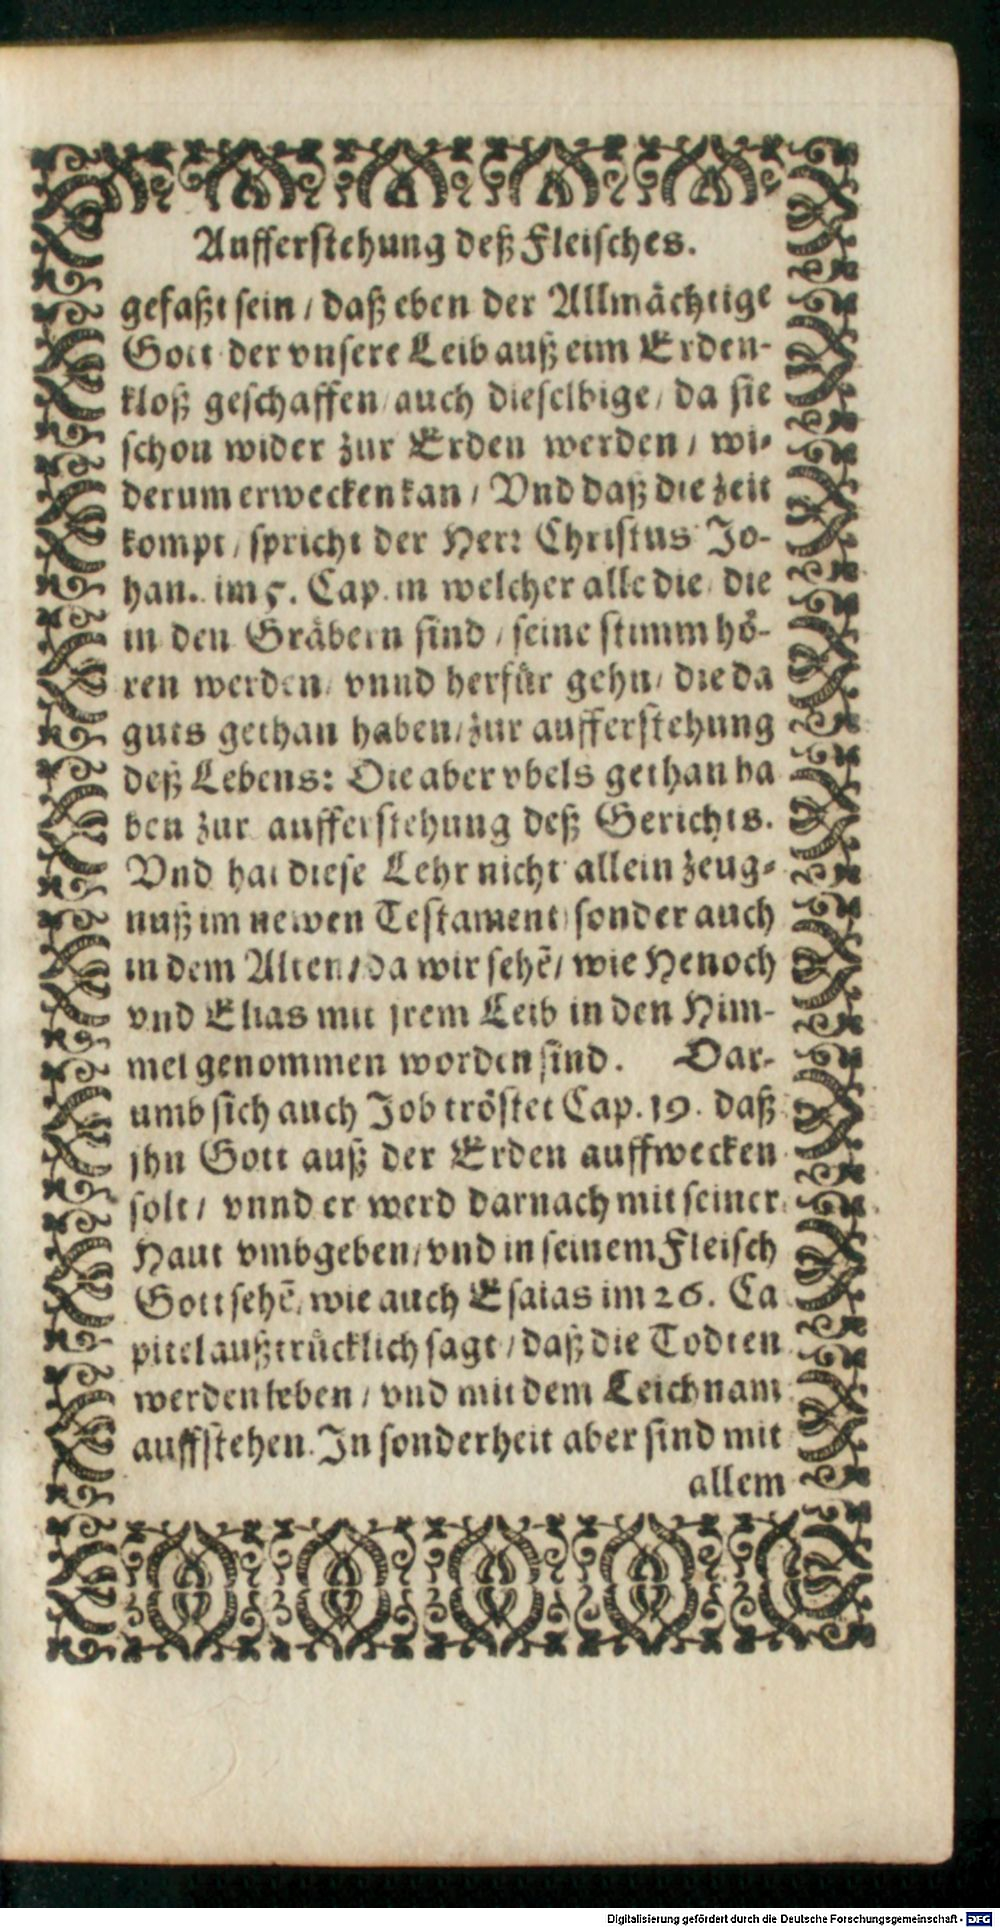 Aufferstehung deß Fleisches.
gefaßt sein / daß eben der Allmächtige
Gott der vnsere Leib auß eim Erden-
kloß geschaffen / auch dieselbige / da sie
schon wider zur Erden werden / wi-
derum erwecken kan / Vnd daß die zeit
kompt / spricht der Herr Christus Jo-
han. im 5. Cap. in welcher alle die / die
in den Gräbern sind / seine stimm hö-
ren werden / vnnd herfür gehn / die da
guts gethan haben / zur aufferstehung
deß Lebens: Die aber vbels gethan ha
ben zur aufferstehung deß Gerichts.
Vnd hat diese Lehr nicht allein zeug-
nuß im newen Testament / sonder auch
in dem Alten / da wir sehẽ / wie Henoch
vnd Elias mit jrem Leib in den Him-
mel genommen worden sind. Dar-
umb sich auch Job tröstet Cap. 19. daß
jhn Gott auß der Erden auffwecken
solt / vnnd er werd darnach mit seiner
Haut vmbgeben / vnd in seinem Fleisch
Gott sehẽ / wie auch Esaias im 26. Ca
pitel außtrücklich sagt / daß die Todten
werden leben / vnd mit dem Leichnam
auffstehen. In sonderheit aber sind mit
allem
Digitalisierung gefördert durch die Deutsche Forschungsgemeinschaft - DFG